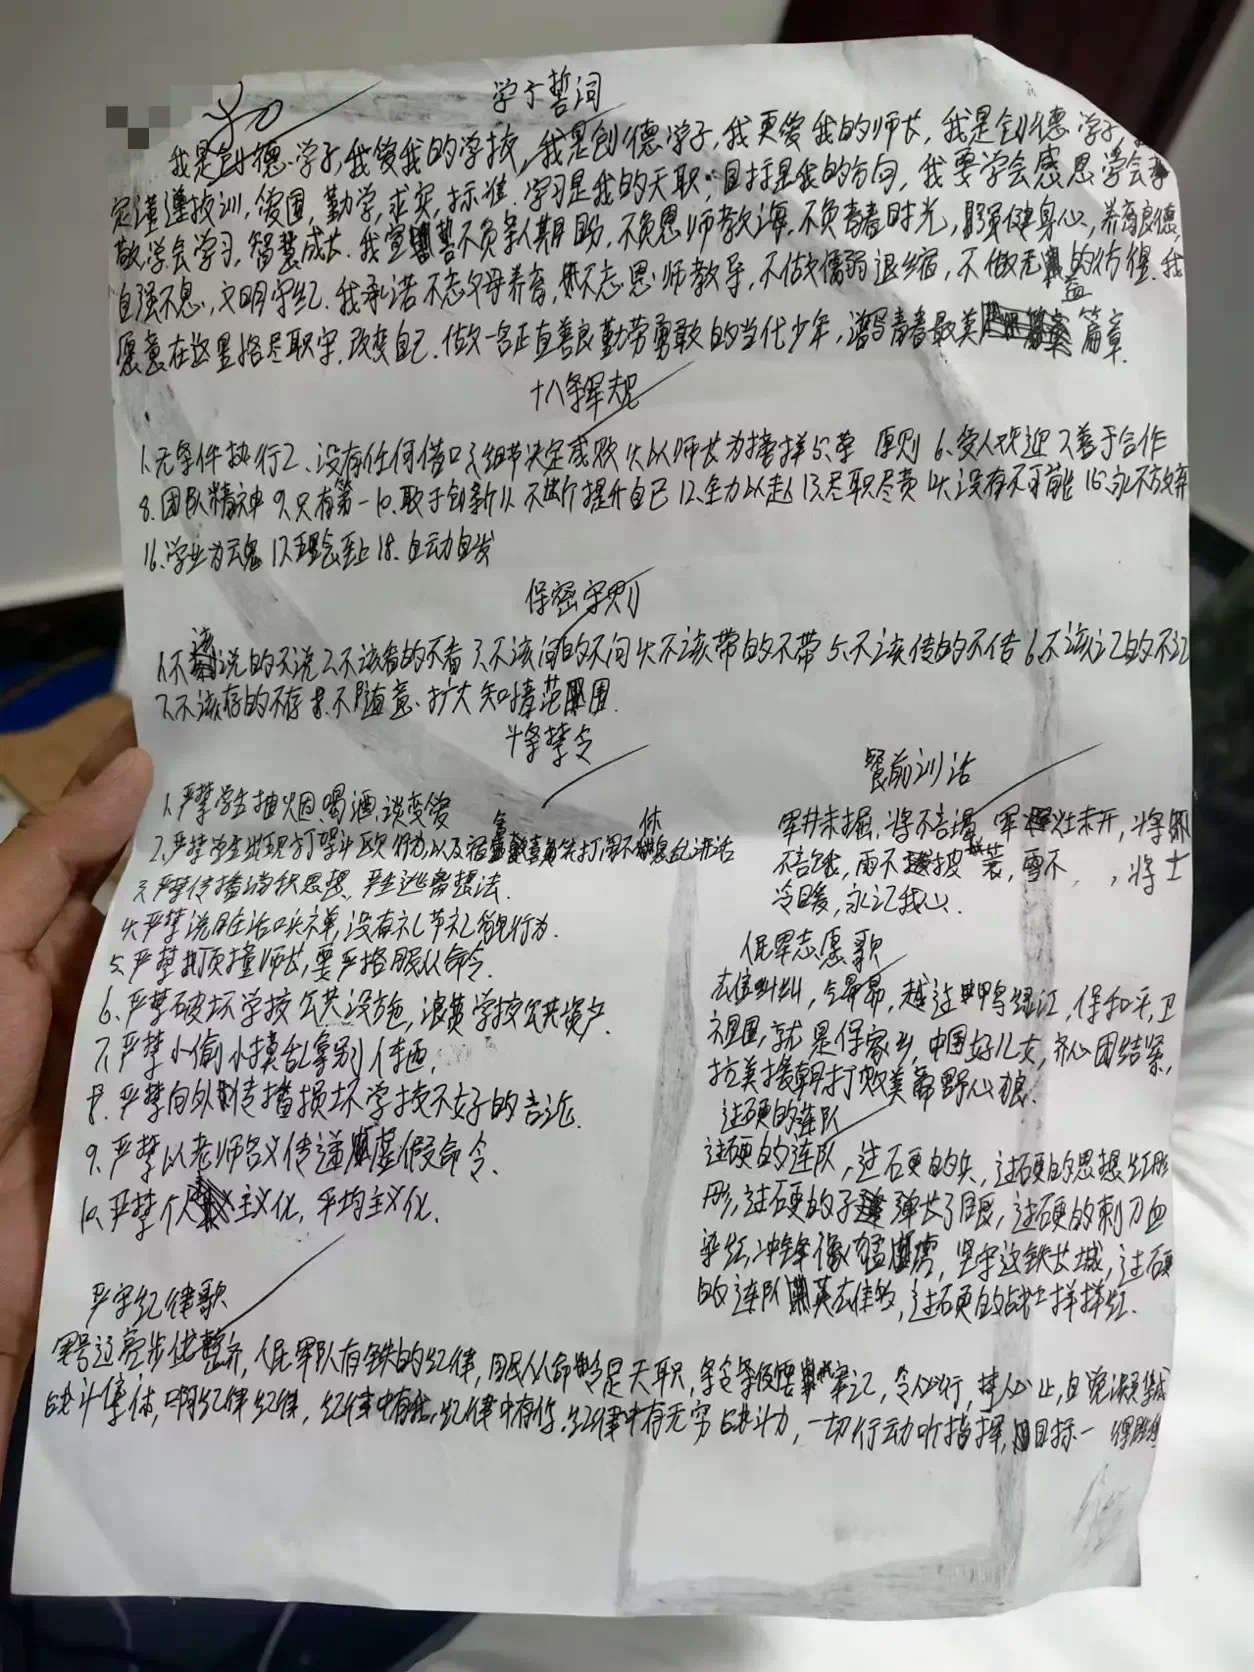 学子誓词
我是创德学子,我爱我的学校,我是创德学子,我更爱我的师长,我是创德学子,
定谨遵校训,爱国,勤学,求实,标准.学习是我的天职,目标是我的方向,我要学会感恩学会
敬,学会学习,智慧成长.我宣誓不负亲人期盼,不负恩师教诲,不负青春时光,强健身心,养育良德,
自强不息,文明守纪.我承诺不忘父母养育,不忘恩师教导,不做懦弱退缩,不做无益的彷徨.我
愿意在这里恪尽职守,改变自己.做一名正直善良勤劳勇敢的当代少年,谱写青春最美篇章.
十八条军规
1.无条件执行2、没有任何借口3.细节决定成败4.以师长为榜样5.荣 原则 6.受人欢迎 7.善于合作
8.团队精神 9.只有第一 10.敢于创新11.不断提升自己 12.全力以赴 13.尽职尽责 14.没有不可能 15.永不放弃
16.学业为魂 17.理念至上 18.自动自发
保密守则
1.不该说的不说 2.不该看的不看 3.不该问的不问 4.不该带的不带 5.不该传的不传 6.不该记的不记
7.不该存的不存 8.不随意、扩大知情范围.
十条禁令
1.严禁学生抽烟、喝酒、谈恋爱
2.严禁学生出现打架斗殴行为,以及宿舍打闹不休息乱讲话
3.严禁传播消积思想,产生逃离想法.
4.严禁说脏话口头禅,没有礼节礼貌行为.
5.严禁顶撞师长,要严格服从命令.
6.严禁破坏学校公共设施,浪费学校公共资产.
7.严禁小偷小摸乱拿别人东西.
8.严禁向外传播损坏学校不好的言论.
9.严禁以老师名义传递虚假命令.
10.严禁个人主义化,平均主义化.
餐前训话
军井未掘,将不言渴,军灶未开,将
不言饿,雨不披蓑,雪不 ,将士
冷暖,永记我心.
人民军志愿歌
雄纠纠,气昂昂,越过鸭绿江,保和平,卫
祖国,就是保家乡,中国好儿女,齐心团结紧,
抗美援朝打败美帝野心狼.
过硬的连队
过硬的连队,过硬的兵,过硬的思想红彤
彤,过硬的子弹长了眼,过硬的刺刀血
染红,冲锋像猛虎,坚守这铁长城,过硬
的连队英雄的,过硬的战士样样红.
严守纪律歌
军号嘹亮步伐整齐,人民军队有铁的纪律,服从命令是天职,条令条例要牢记,令必行,禁必止,自觉凝聚成
战斗集体,啊纪律纪律,纪律中有我,纪律中有你,纪律中有无穷战斗力,一切行动听指挥,目标一 得胜利